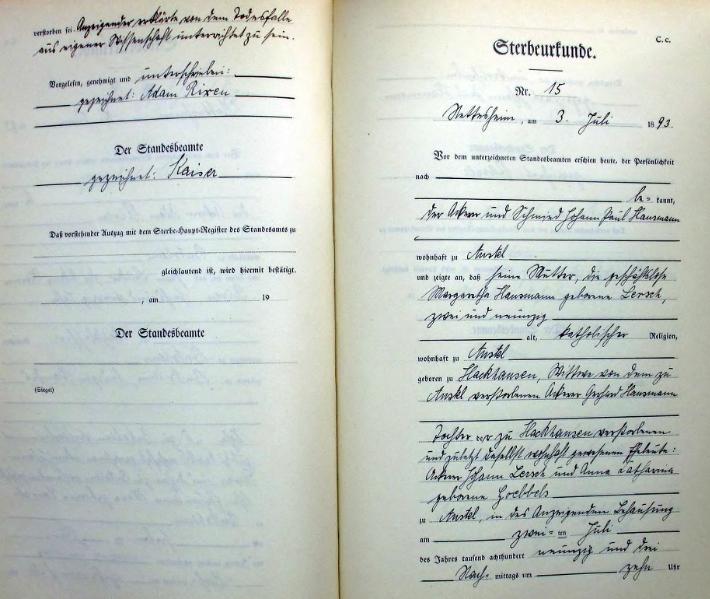 verstorben sei. Anzeigender erklärte von dem Todesfalle
aus eigener Wissenschaft unterrichtet zu sein.
Vorgelesen, genehmigt und unterschrieben:
gezeichnet: Adam Rixen
Der Standesbeamte
gezeichnet: Kaiser
Daß vorstehender Auszug mit dem Sterbe-Haupt-Register des Standesamts zu
gleichlautend ist, wird hiermit bestätigt.
, am 19
Der Standesbeamte
(Siegel)
C. c.
Sterbeurkunde.
Nr. 15
Nettesheim, am 3. Juli 1893.
Vor dem unterzeichneten Standesbeamten erschien heute, der Persönlichkeit
nach
be- kannt,
der Ackerer und Schmied Johann Paul Hausmann
wohnhaft zu Anstel
und zeigte an, daß seine Mutter, die geschäftslose
Margaretha Hausmann geborene Lersch,
zwei und neunzig
alt, katholischer Religion,
wohnhaft zu Anstel
geboren zu Hackhausen, Wittwe von dem zu
Anstel verstorbenen Ackerer Gerhard Hausmann
Tochter der zu Hackhausen verstorbenen
und zuletzt daselbst wohnhaft gewesenen Eheleute:
Ackerer Johann Lersch und Anna Catharina
geborene Goebbels
zu Anstel, in des Anzeigenden Behausung
am zwei- ten Juli
des Jahres tausend achthundert neunzig und drei
Nach- mittags um zehn Uhr